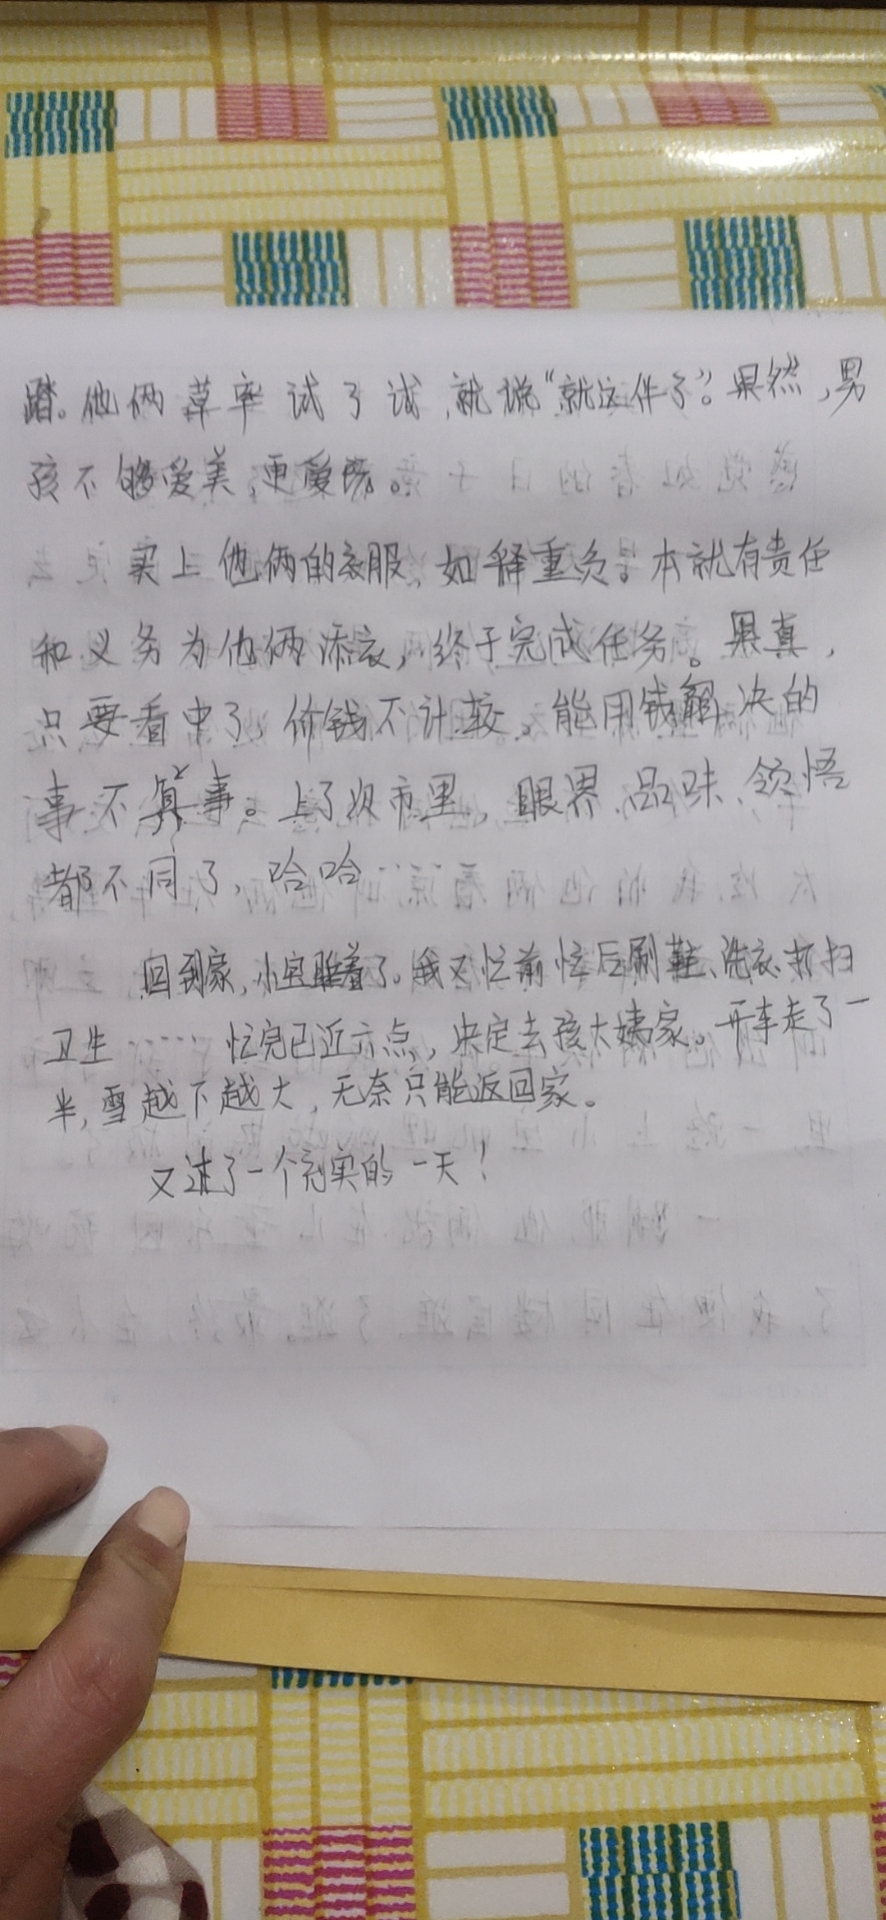 踏。他俩草率试了试,就说“就这件了”。果然,男
孩不够爱美,更爱玩。
买上他俩的衣服,如释重负。本就有责任
和义务为他俩添衣,终于完成任务。果真,
只要看中了,价钱不计较。能用钱解决的
事不算事。上了次市里,眼界、品味、领悟
都不同了,哈哈……
回到家,小宝睡着了。我又忙前忙后刷鞋、洗衣、打扫
卫生……忙完已近六点,决定去孩大姨家。开车走了一
半,雪越下越大,无奈只能返回家。
又过了一个充实的一天!